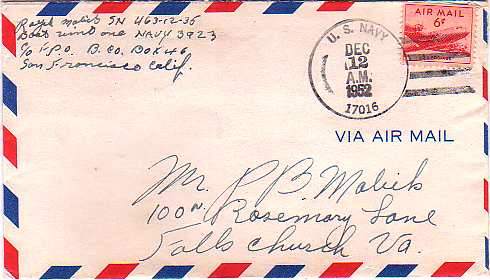 Ralph Malick SN 463-12-35
Boat unit one NAVY 3923
c/o F.P.O. B. Co. BOX 46
San Francisco Calif.
U. S. NAVY
DEC
12
A.M.
1952
17016
AIR MAIL
6¢
VIA AIR MAIL
Mr. P B Malick
100 N. Rosemary Lane
Falls Church Va.